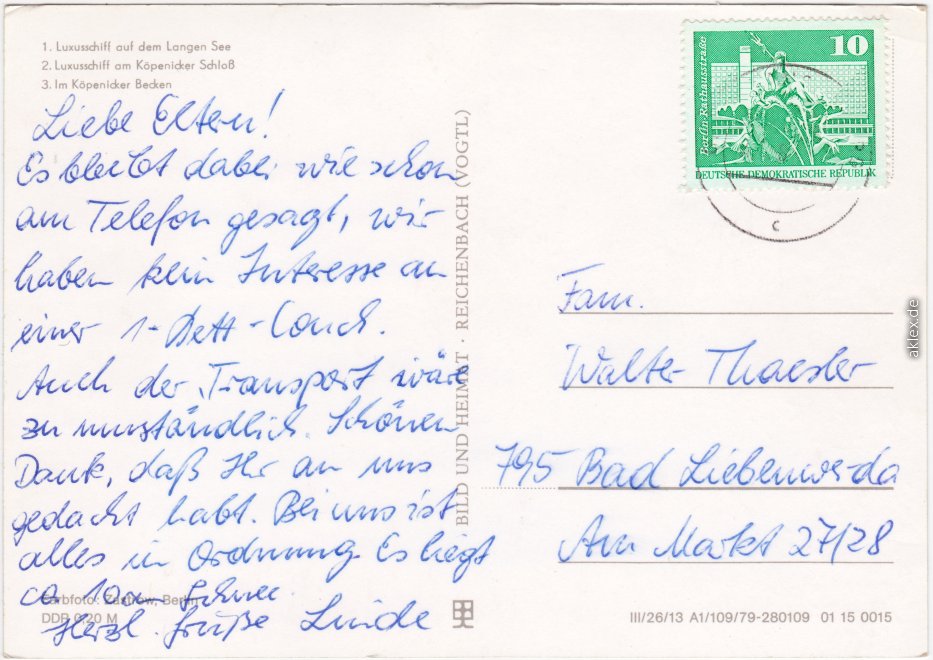 1. Luxusschiff auf dem Langen See
2. Luxusschiff am Köpenicker Schloß
3. Im Köpenicker Becken
Liebe Eltern!
Es bleibt dabei wie schon
am Telefon gesagt, wir
haben kein Interesse an
einer 1-Bett-Couch.
Auch der Transport wäre
zu umständlich. Schönen
Dank, daß Ihr an uns
gedacht habt. Bei uns ist
alles in Ordnung. Es liegt
ca 10 cm Schnee.
Herzl. Grüße Linde
Farbfoto: Zastrow, Berlin
DDB 0,20 M
BILD UND HEIMAT · REICHENBACH (VOGTL)
10
Berlin, Rathausstraße
DEUTSCHE DEMOKRATISCHE REPUBLIK
c
Fam.
Walter Thaesler
795 Bad Liebenwerda
Am Markt 27/28
III/26/13 A1/109/79-280109 01 15 0015
aklex.de